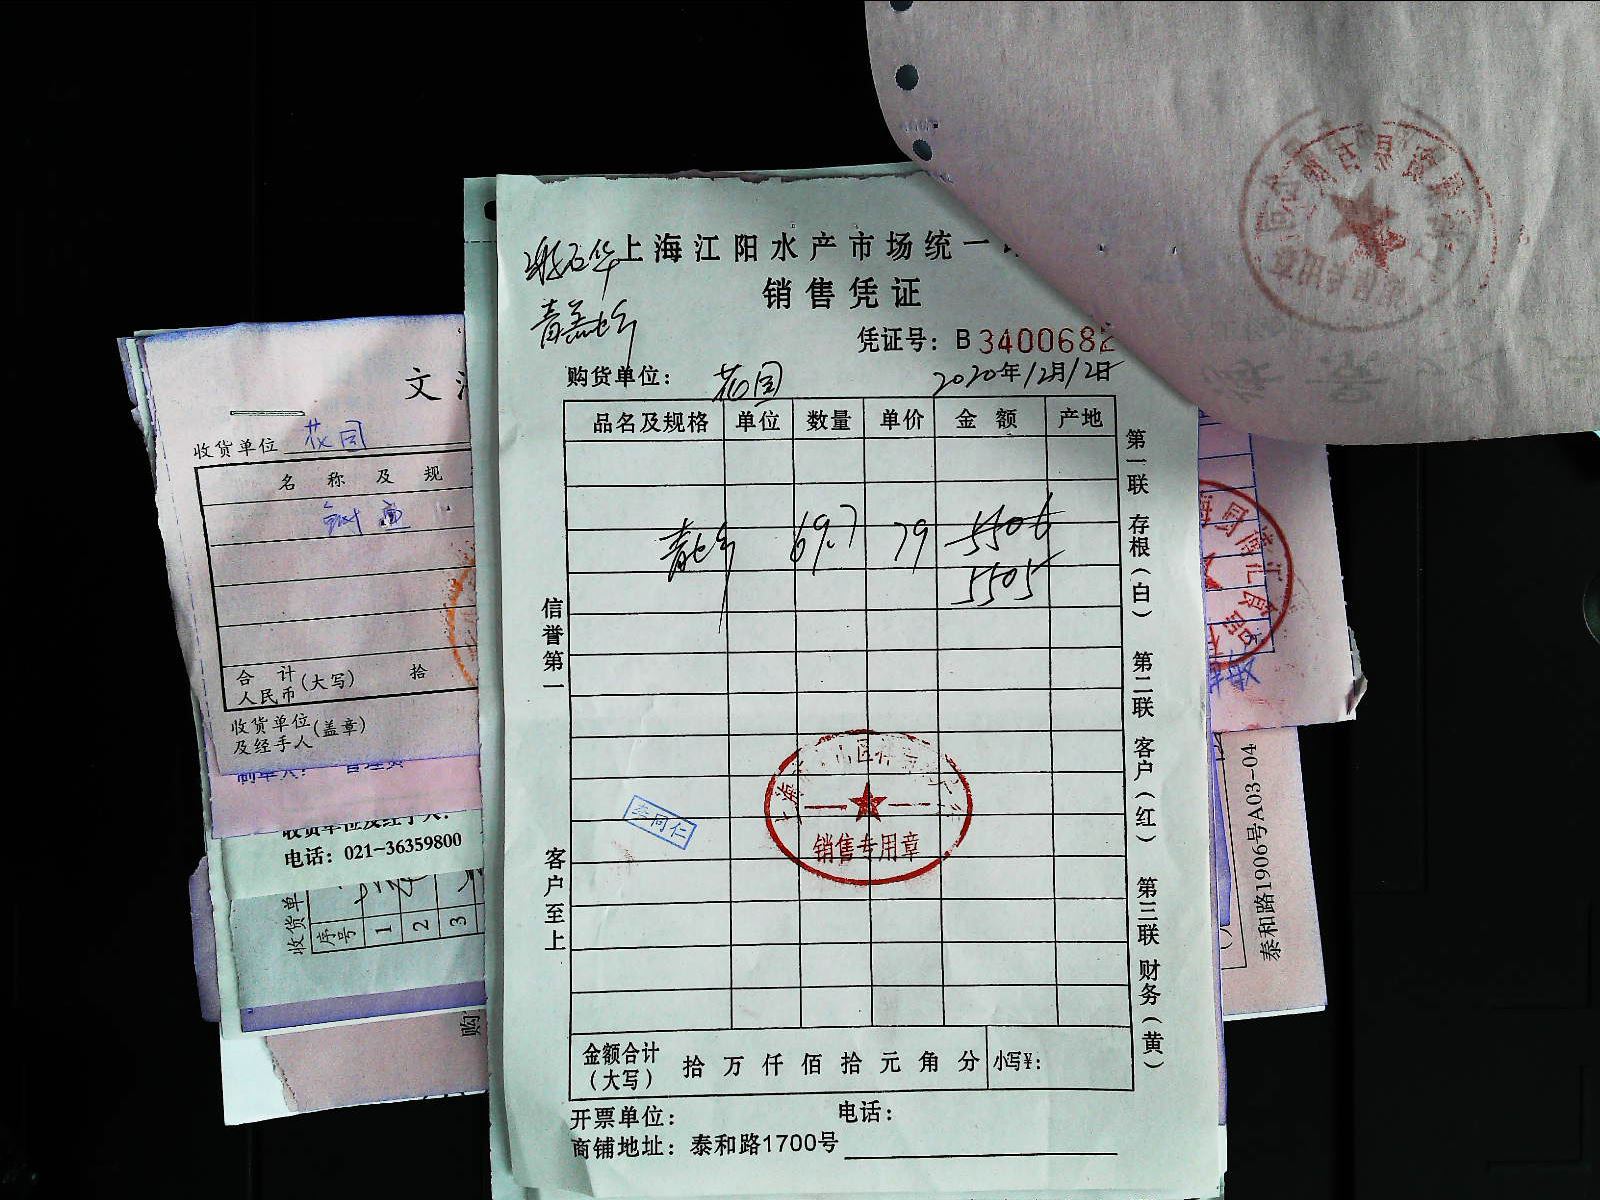 上海江阳水产市场统一
销售凭证
凭证号：B 340068
购货单位： 花园 2020年12月12日
品名及规格 单位 数量 单价 金额 产地
69.7 79 5506
5505
信誉第一 客户至上
第一联 存根（白） 第二联 客户（红） 第三联 财务（黄）
李同仁
销售专用章
金额合计（大写） 拾 万 仟 佰 拾 元 角 分 小写¥：
开票单位： 电话：
商铺地址：泰和路1700号
文
收货单位 花园
名 称 及 规
合 计
人民币(大写) 拾
收货单位
及经手人(盖章)
收货单位及经手人：
电话：021-36359800
收货单
序号 1 2 3
购
泰和路1906号A03-04